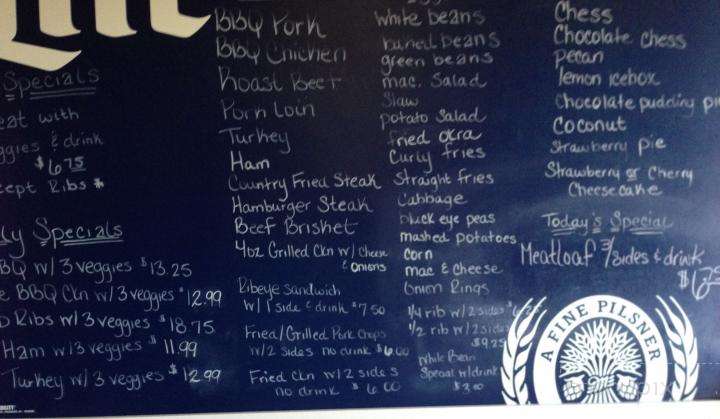 Lite
Specials
eat with
ggies & drink
$6.75
cept Ribs *
ly Specials
BQ w/3 veggies $13.25
e BBQ Ckn w/3 veggies $12.99
Ribs w/3 veggies $18.75
Ham w/3 veggies $11.99
Turkey w/3 veggies $12.99
BBQ Pork
BBQ Chicken
Roast Beef
Porn Loin
Turkey
Ham
Country Fried Steak
Hamburger Steak
Beef Brisket
4oz Grilled Ckn w/ Cheese
& onions
Ribeye Sandwich
w/1 side & drink $7.50
Fried/Grilled Pork Chops
w/2 sides no drink $6.00
Fried Ckn w/2 sides
no drink $6.00
white beans
baked beans
green beans
mac. Salad
Slaw
potato Salad
fried okra
Curly fries
Straight fries
Cabbage
black eye peas
mashed potatoes
Corn
mac & Cheese
Onion Rings
1/4 rib w/2 sides
1/2 rib w/2 sides
$9.25
White Bean
Special w/drink
$3.00
Chess
Chocolate Chess
pecan
lemon icebox
Chocolate pudding
Coconut
Strawberry pie
Strawberry or Cherry
Cheesecake
Today's Special
Meatloaf 3/sides & drink
A FINE PILSNER